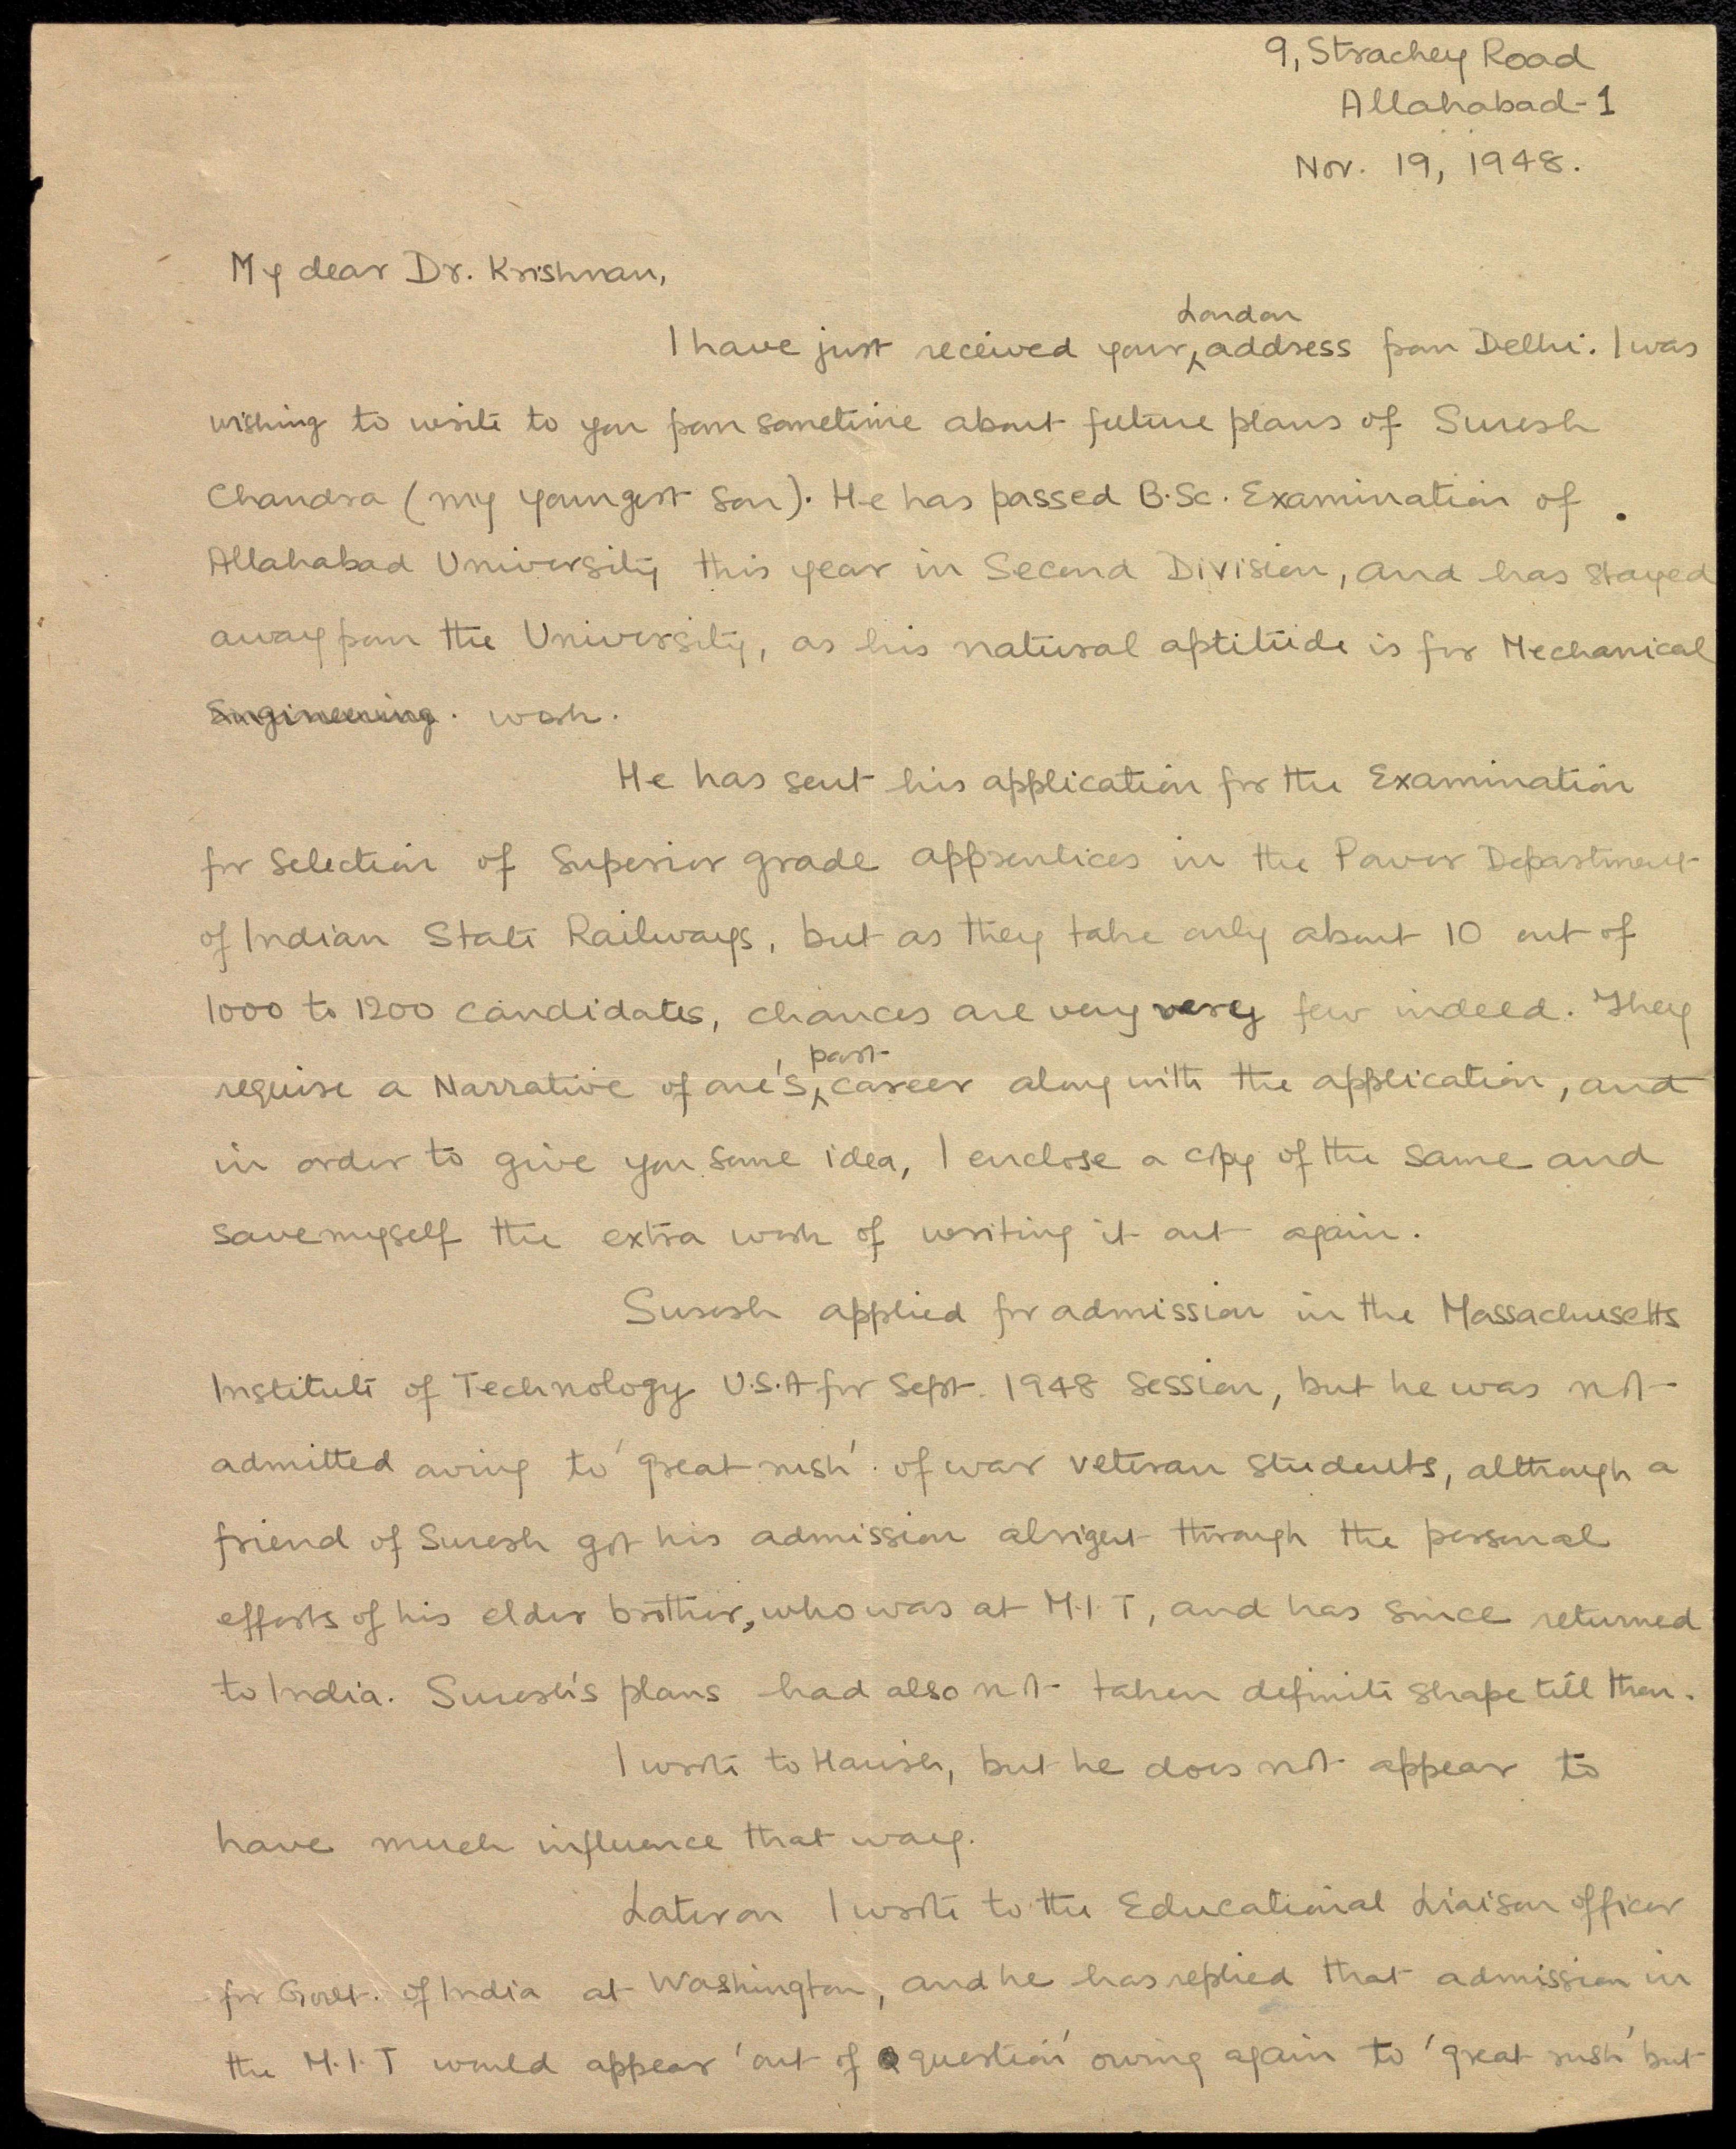 9, Strachey Road
Allahabad-1
Nov. 19, 1948.
My dear Dr. Krishnan,
London
I have just received your address from Delhi. I was
wishing to write to you from sometime about future plans of Suresh
Chandra (my youngest son). He has passed B.Sc. Examination of
Allahabad University this year in Second Division, and has stayed
away from the University, as his natural aptitude is for Mechanical
Engineering. work.
He has sent his application for the Examination
for selection of Superior grade apprentices in the Power Department
of Indian State Railways, but as they take only about 10 out of
1000 to 1200 candidates, chances are very very few indeed. They
past
require a Narrative of one's career along with the application, and
in order to give you some idea, I enclose a copy of the same and
save myself the extra work of writing it out again.
Suresh applied for admission in the Massachusetts
Institute of Technology U.S.A for Sept. 1948 Session, but he was not
admitted owing to 'great rush' of war veteran students, although a
friend of Suresh got his admission alright through the personal
efforts of his elder brother, who was at M.I.T, and has since returned
to India. Suresh's plans had also not taken definite shape till then.
I wrote to Harish, but he does not appear to
have much influence that way.
Later on I wrote to the Educational Liaison officer
for Govt. of India at Washington, and he has replied that admission in
the M.I.T would appear 'out of question' owing again to 'great rush' but